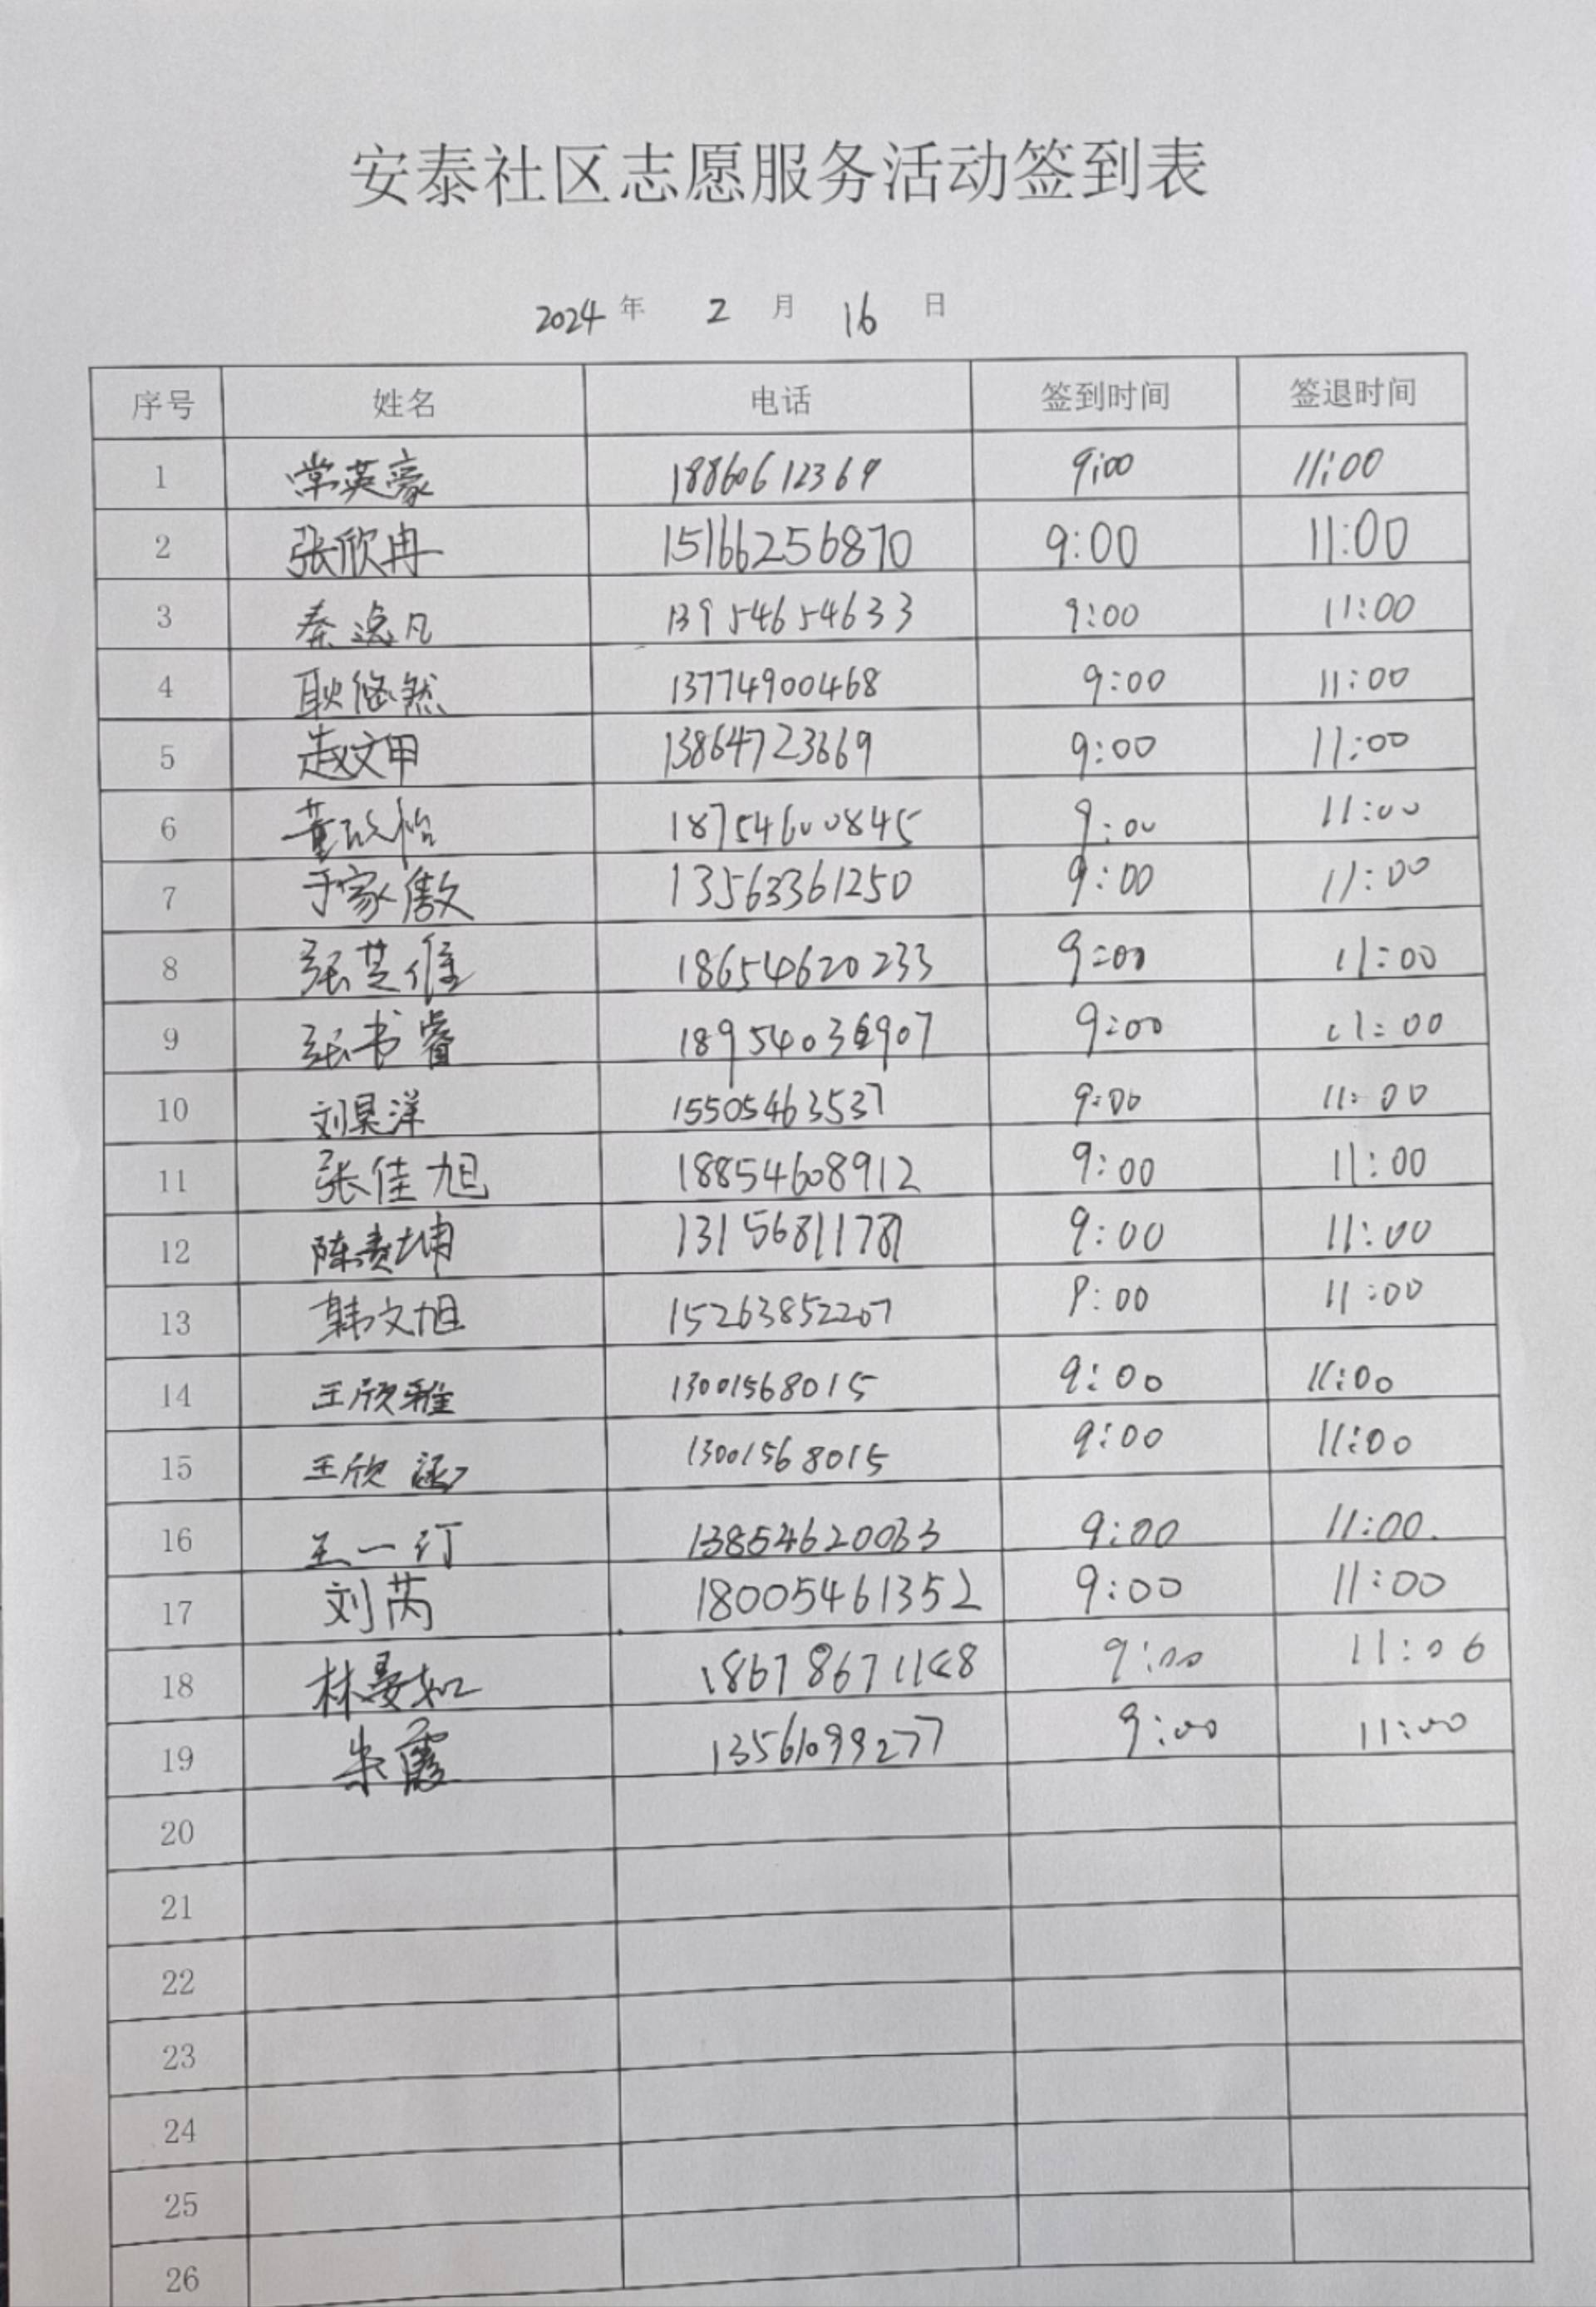 安泰社区志愿服务活动签到表
2024 年 2 月 16 日
序号 姓名 电话 签到时间 签退时间
1 常英豪 18860612369 9:00 11:00
2 张欣冉 15166256870 9:00 11:00
3 秦逸凡 13954654633 9:00 11:00
4 耿悠然 13774900468 9:00 11:00
5 赵文甲 13864723669 9:00 11:00
6 董 怡 18754600845 9:00 11:00
7 于家傲 13563361250 9:00 11:00
8 张芝维 18654620233 9:00 11:00
9 张书睿 18954036907 9:00 11:00
10 刘昊洋 15505463537 9:00 11:00
11 张佳旭 18854608912 9:00 11:00
12 陈彦坤 13156811781 9:00 11:00
13 韩文旭 15263852207 9:00 11:00
14 王欣雅 13001568015 9:00 11:00
15 王欣涵 13001568015 9:00 11:00
16 王一汀 13854620033 9:00 11:00.
17 刘芮 18005461352 9:00 11:00
18 林晏如 9:00 11:00
19 朱霞 13561099277 9:00 11:00
20
21
22
23
24
25
26